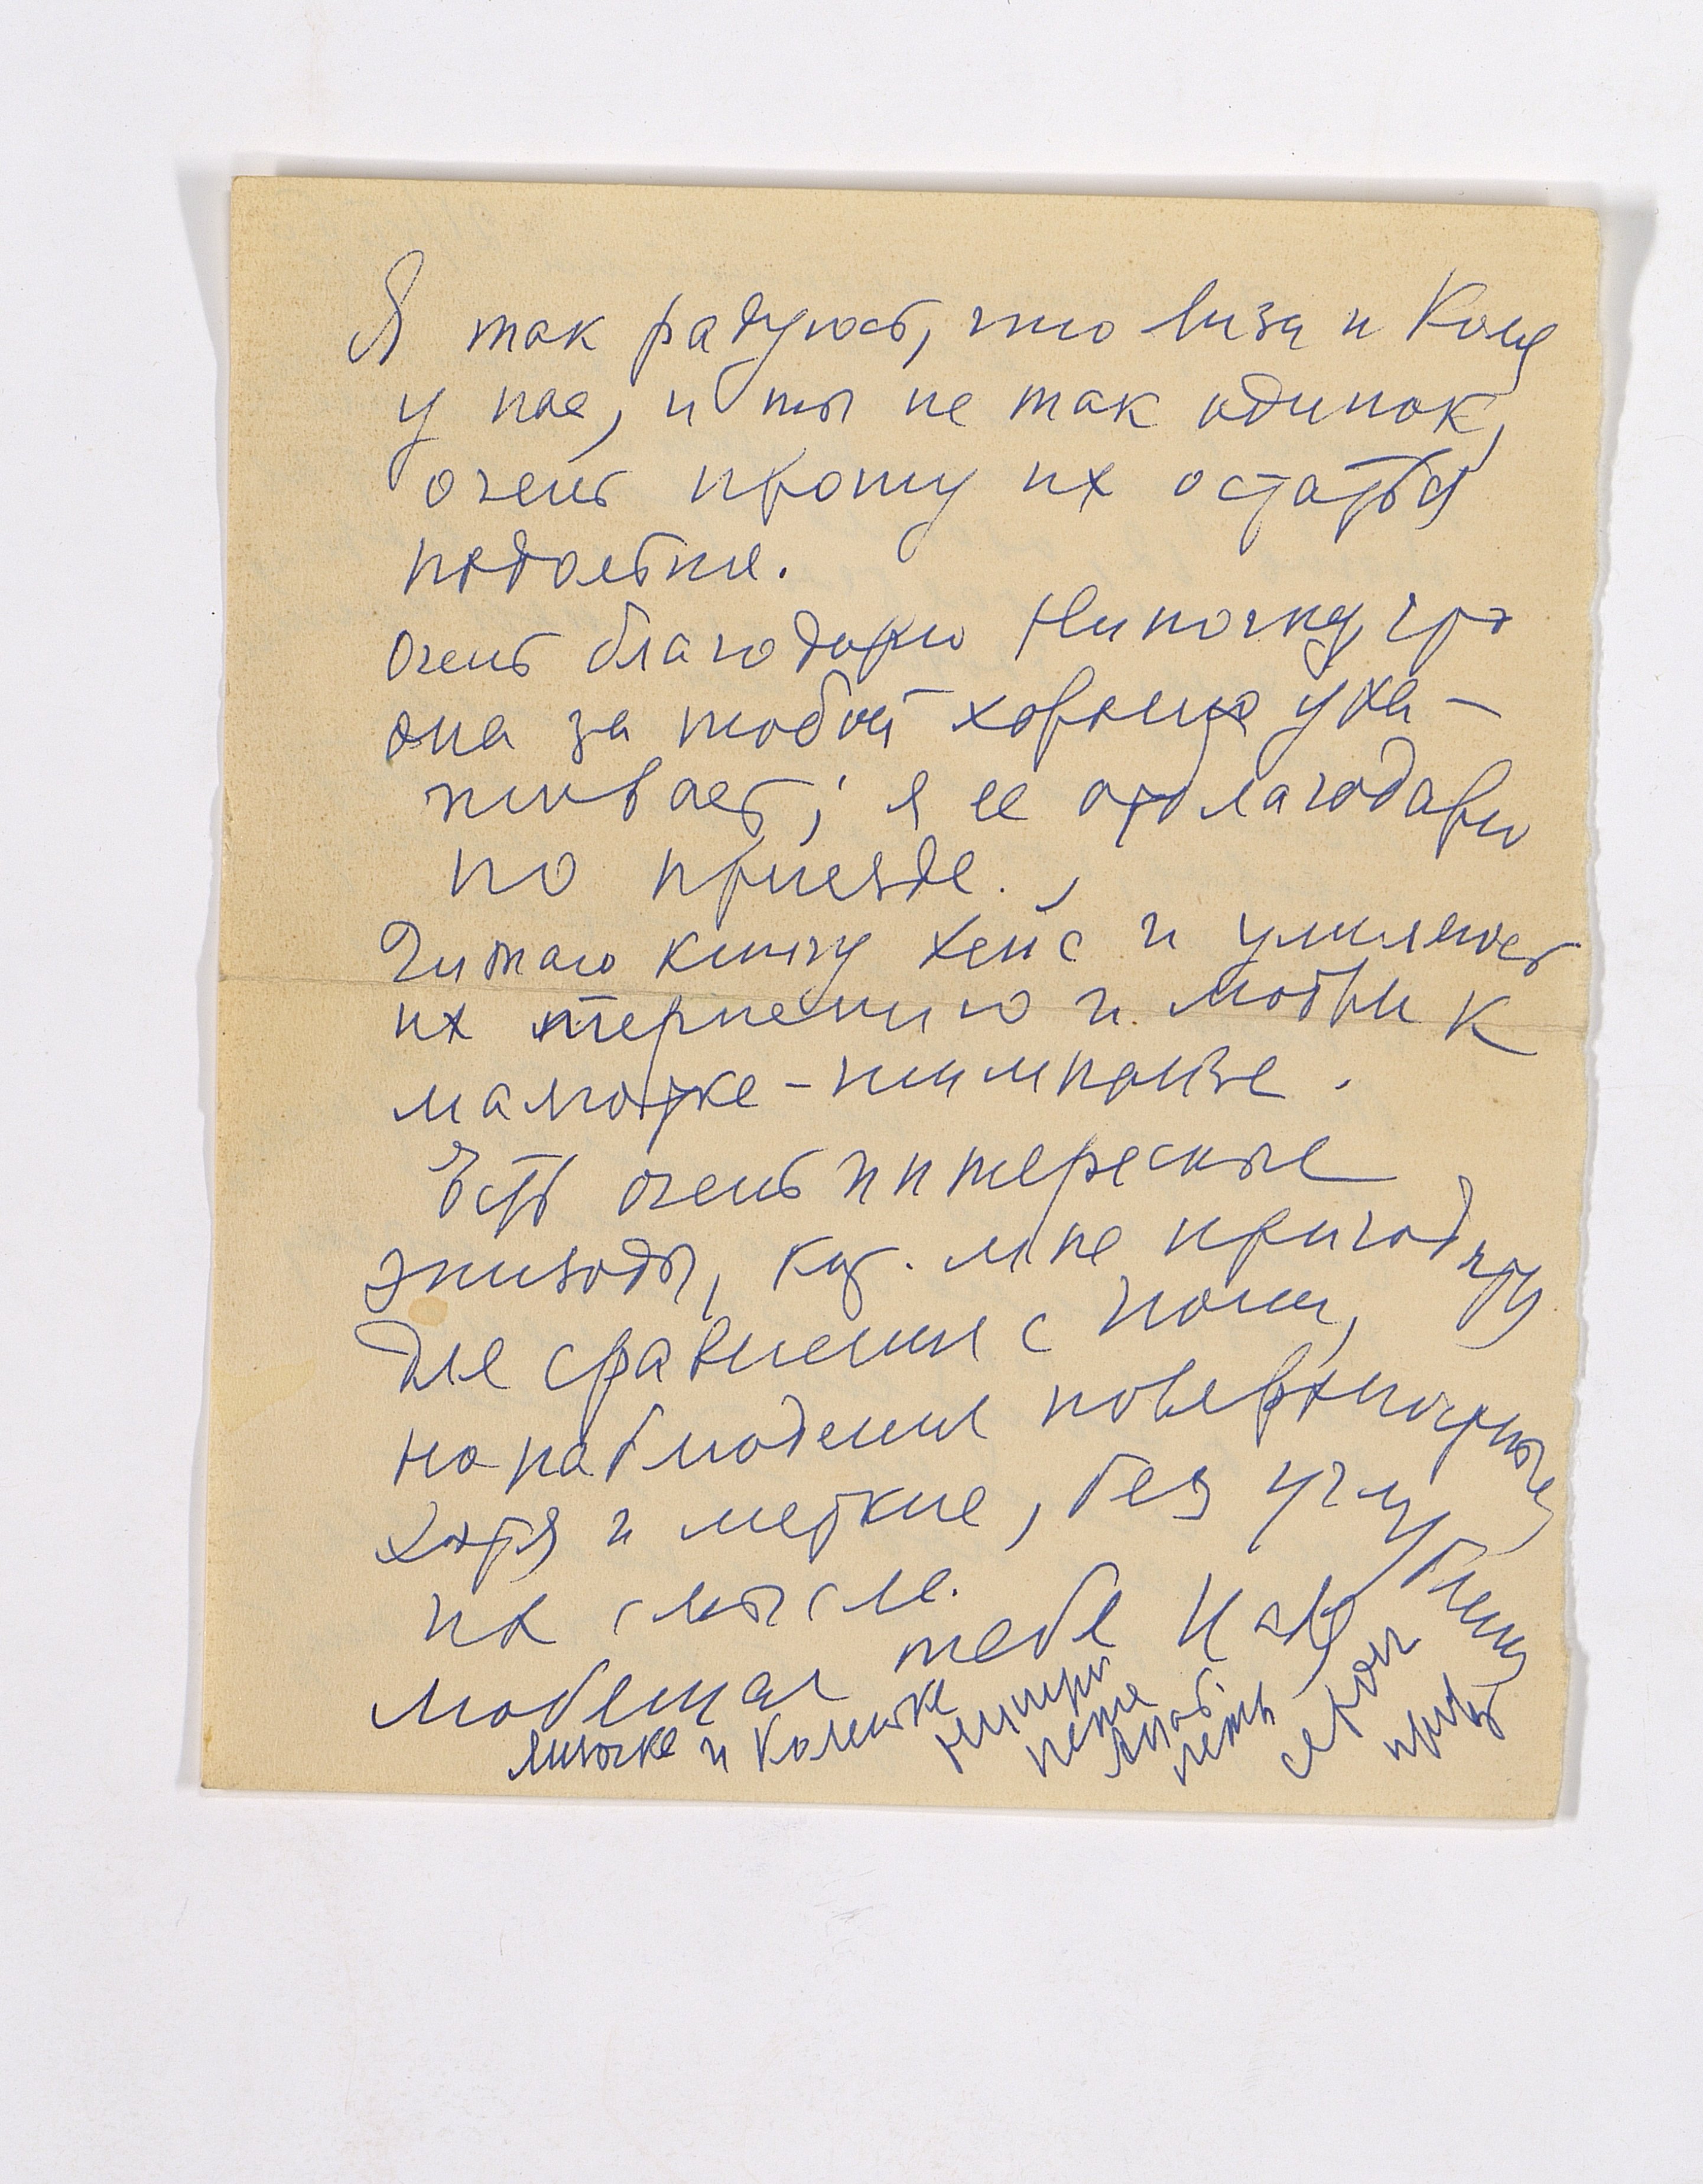 Я так радуюсь, что Лиза и Коля
у нас, и ты не так одинок,
очень прошу их остаться
подольше.
Очень благодарю Ниночку, что
она за тобой хорошо уха-
живает; я ее отблагодарю
по приезде.
Читаю книгу Хейс и умиляюсь
их терпению и любви к
малютке-шимпанзе.
Есть очень интересные
эпизоды, кот. мне пригодятся
для сравнения с Иони,
но наблюдения поверхностные,
хотя и меткие, без углубления
их смысле.
Любящая тебя Надя
Лизочке и Коленьке
привет